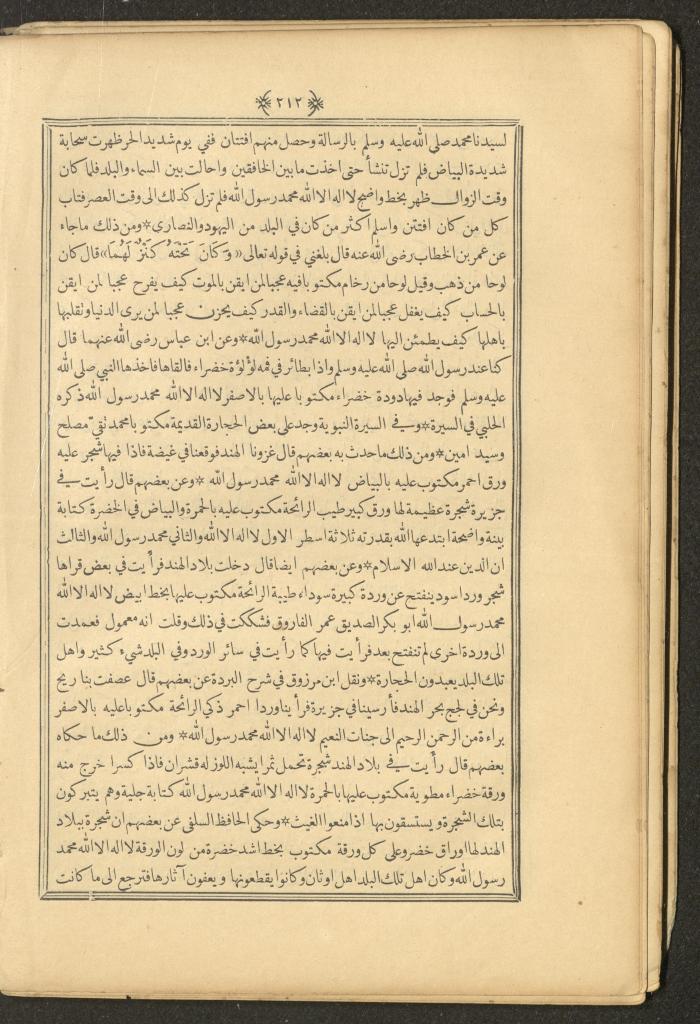 ﴿٢١٢﴾
لسيدنا محمد صلى الله عليه وسلم بالرسالة وحصل منهم افتتان ففي يوم شديد الحر ظهرت سحابة
شديدة البياض فلم تزل تنشأ حتى اخذت ما بين الخافقين واحالت بين السماء والبلد فلما كان
وقت الزوال ظهر بخط واضح لا اله الا الله محمد رسول الله فلم تزل كذلك الى وقت العصر فتاب
كل من كان افتتن واسلم اكثر من كان في البلد من اليهود والنصارى * ومن ذلك ما جاء
عن عمر بن الخطاب رضى الله عنه قال بلغني في قوله تعالى «وَكَانَ تَحْتَهُ كَنْزٌ لَهُمَا» قال كان
لوحا من ذهب وقيل لوحا من رخام مكتوبا فيه عجبا لمن ايقن بالموت كيف يفرح عجبا لمن ايقن
بالحساب كيف يغفل عجبا لمن ايقن بالقضاء والقدر كيف يحزن عجبا لمن يرى الدنيا وتقلبها
باهلها كيف يطمئن اليها لا اله الا الله محمد رسول الله * وعن ابن عباس رضى الله عنهما قال
كنا عند رسول الله صلى الله عليه وسلم واذا بطائر في فمه لؤلؤة خضراء فالقاها فاخذها النبي صلى الله
عليه وسلم فوجد فيها دودة خضراء مكتوبا عليها بالاصفر لا اله الا الله محمد رسول الله ذكره
الحلبي في السيرة * وفي السيرة النبوية وجد على بعض الحجارة القديمة مكتوبا محمد تقيّ مصلح
وسيد امين * ومن ذلك ما حدث به بعضهم قال غزونا الهند فوقعنا في غيضة فاذا فيها شجر عليه
ورق احمر مكتوب عليه بالبياض لا اله الا الله محمد رسول الله * وعن بعضهم قال رأيت في
جزيرة شجرة عظيمة لها ورق كبير طيب الرائحة مكتوب عليه بالحمرة والبياض في الخضرة كتابة
بينة واضحة ابتدعها الله بقدرته ثلاثة اسطر الاول لا اله الا الله والثاني محمد رسول الله والثالث
ان الدين عند الله الاسلام * وعن بعضهم ايضا قال دخلت بلاد الهند فرأيت في بعض قراها
شجر ورد اسود ينفتح عن وردة كبيرة سوداء طيبة الرائحة مكتوب عليها بخط ابيض لا اله الا الله
محمد رسول الله ابو بكر الصديق عمر الفاروق فشككت في ذلك وقلت انه معمول فعمدت
الى وردة اخرى لم تنفتح بعد فرأيت فيها كما رأيت في سائر الورد وفي البلد شيء كثير واهل
تلك البلد يعبدون الحجارة * ونقل ابن مرزوق في شرح البردة عن بعضهم قال عصفت بنا ريح
ونحن في لجج بحر الهند فأرسينا في جزيرة فرأينا وردا احمر ذكي الرائحة مكتوبا عليه بالاصفر
براءة من الرحمن الرحيم الى جنات النعيم لا اله الا الله محمد رسول الله * ومن ذلك ما حكاه
بعضهم قال رأيت في بلاد الهند شجرة تحمل ثمرا يشبه اللوز له قشران فاذا كسرا خرج منه
ورقة خضراء مطوية مكتوب عليها بالحمرة لا اله الا الله محمد رسول الله كتابة جلية وهم يتبركون
بتلك الشجرة ويستسقون بها اذا منعوا الغيث * وحكى الحافظ السلفي عن بعضهم ان شجرة ببلاد
الهند لها اوراق خضر وعلى كل ورقة مكتوب بخط اشد خضرة من لون الورقة لا اله الا الله محمد
رسول الله وكان اهل تلك البلد اهل اوثان وكانوا يقطعونها ويعفون آثارها فترجع الى ما كانت